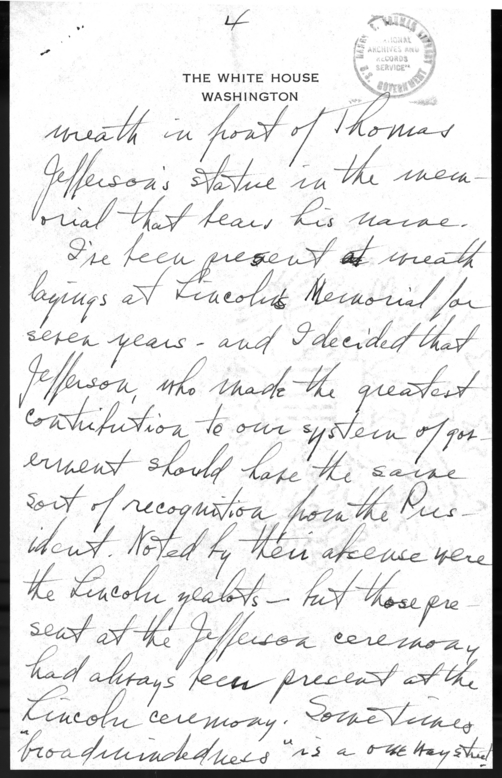 4
HARRY S. TRUMAN LIBRARY
"NATIONAL
ARCHIVES AND
RECORDS
SERVICE"
U.S. GOVERNMENT
THE WHITE HOUSE
WASHINGTON
wreath in front of Thomas
Jefferson's statue in the mem-
orial that bears his name.
I've been present at wreath
layings at Lincoln's Memorial for
seven years - and I decided that
Jefferson, who made the greatest
contribution to our system of gov-
ernment should have the same
sort of recognition from the Pres-
ident. Noted by their absense were
the Lincoln zealots - but those pre-
sent at the Jefferson ceremony
had always been present at the
Lincoln ceremony. Sometimes
"broadmindedness" is a one way street